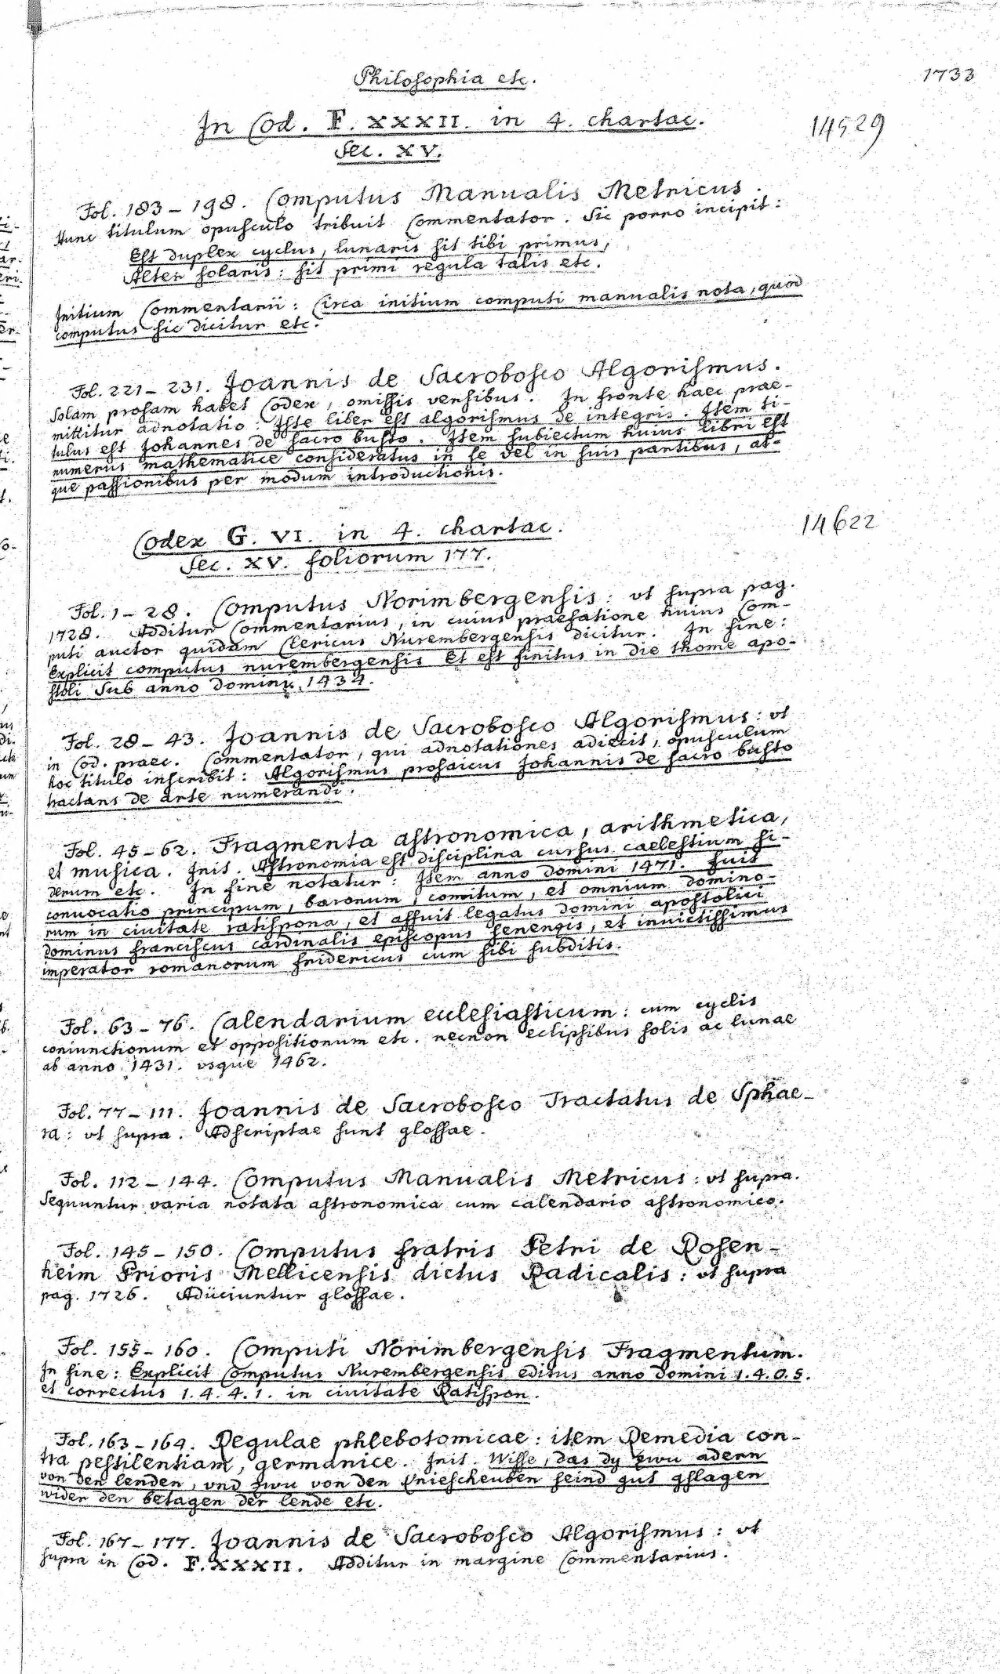 Philosophia etc.
1733
In Cod. F. XXXII. in 4. chartac.
14529
Sec. XV.
Fol. 183 – 198. Computus Manualis Metricus.
Hunc titulum opusculo tribuit Commentator. Sic porro incipit:
Est duplex cyclus, lunaris sit tibi primus,
Alter solaris: sit primi regula talis etc.
Initium Commentarii: Circa initium computi manualis nota, quod
computus sic dicitur etc.
Fol. 221 – 231. Joannis de Sacrobosco Algorismus.
Solam prosam habet Codex, omissis versibus. In fronte haec prae-
mittitur adnotatio: Iste liber est algorismus de integris. Item ti-
tulus est Johannes de sacro busto. Item subiectum huius libri est
numerus mathematice consideratus in se vel in suis partibus, at-
que passionibus per modum introductionis.
Codex G. VI. in 4. chartac.
14622
Sec. XV. foliorum 177.
Fol. 1 – 28. Computus Norimbergensis: vt supra pag.
1728. Additur Commentarius, in cuius praefatione huius Com-
puti auctor quidam Clericus Nurembergensis dicitur. In fine:
Explicit computus nurembergensis Et est finitus in die thome apo-
stoli Sub anno domini 1434.
Fol. 28 – 43. Joannis de Sacrobosco Algorismus: vt
in Cod. praec. Commentator, qui adnotationes adiecit, opusculum
hoc titulo inscribit: Algorismus prosaicus Johannis de sacro busto
tractans de arte numerandi.
Fol. 45 – 62. Fragmenta astronomica, arithmetica,
et musica. Init. Astronomia est disciplina cursus caelestium si-
derum etc. In fine notatur: Item anno domini 1471. fuit
convocatio principum, baronum, comitum, et omnium domino-
rum in ciuitate ratispona, et affuit legatus domini apostolici
dominus franciscus cardinalis episcopus senensis, et invictissimus
imperator romanorum fridericus cum sibi subditis.
Fol. 63 – 76. Calendarium ecclesiasticum: cum cyclis
coniunctionum et oppositionum etc. necnon eclipsibus solis ac lunae
ab anno 1431. vsque 1462.
Fol. 77 – 111. Joannis de Sacrobosco Tractatus de Sphae-
ra: vt supra. Adscriptae sunt glossae.
Fol. 112 – 144. Computus Manualis Metricus: vt supra.
Sequuntur varia notata astronomica cum calendario astronomico.
Fol. 145 – 150. Computus fratris Petri de Rosen-
heim Prioris Mellicensis dictus Radicalis: vt supra
pag. 1726. Adiiciuntur glossae.
Fol. 155 – 160. Computi Norimbergensis Fragmentum.
In fine: Explicit Computus Nurembergensis editus anno domini 1.4.0.5.
et correctus 1.4.4.1. in ciuitate Ratispon.
Fol. 163 – 164. Regulae phlebotomicae: item Remedia con-
tra pestilentiam, germanice. Init. Wisse, das dy zwu adern
von den lenden, vnd zwu von den Kniescheuben seind gut gslagen
wider den betagen der lende etc.
Fol. 167 – 177. Joannis de Sacrobosco Algorismus: vt
supra in Cod. F. XXXII. Additur in margine Commentarius.